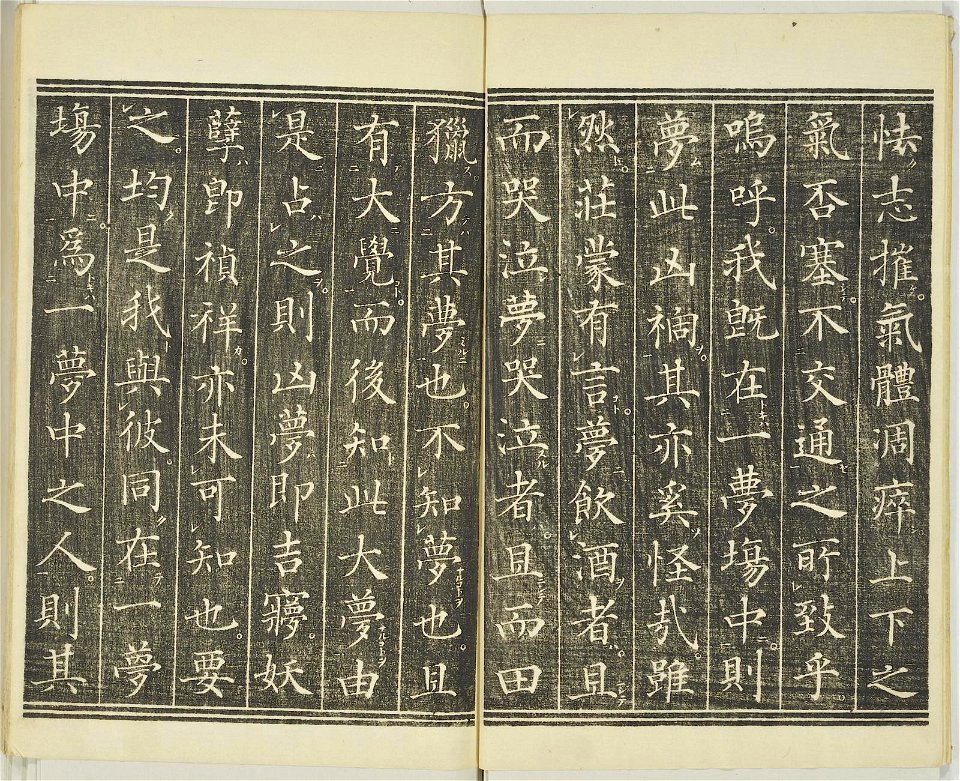 怯志摧氣體凋瘁上下之
氣否塞不交通之所致乎
嗚呼我既在一夢場中則
夢此凶禍其亦奚怪哉雖
然莊蒙有言夢飲酒者且
而哭泣夢哭泣者且而田
獵方其夢也不知夢也且
有大覺而後知此大夢由
是占之則凶夢即吉寢妖
孽卽禎祥亦未可知也要
之均是我與彼同在一夢
場中爲一夢中之人則其